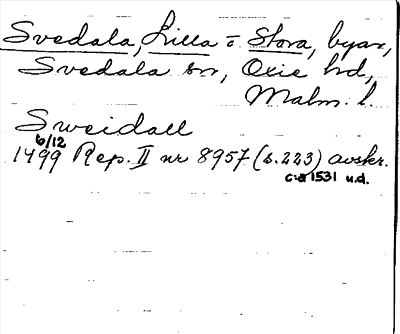 Svedala, Lilla o Stora, byar,
Svedala sn, Oxie hd,
Malm. l.
Sweidall
6/12
1499 Rep. II nr 8957 (s.223) avskr.
ca 1531 u.d.